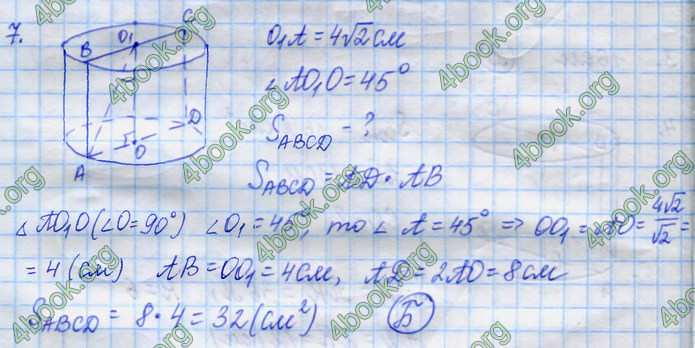 7.
C
B O₁
D
O
A
O₁A = 4√2 см
∠AO₁O = 45°
S_ABCD - ?
S_ABCD = AD · AB
△ AO₁O (∠O = 90°) ∠O₁ = 45°, то ∠ A = 45° ⇒ OO₁ = AO = 4√2/√2 =
= 4 (см) AB = OO₁ = 4 см, AD = 2AO = 8 см
S_ABCD = 8 · 4 = 32 (см²) Б
4book.org
4book.org
4book.org
4book.org
4book.org
4book.org
4book.org
4book.org
4book.org